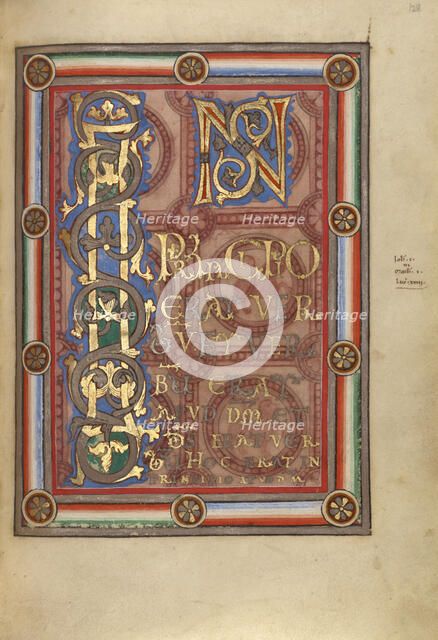 128
IN
PRINCIPIO
ERAT VER
BŪ ET VER
BŪ ERAT
APVD DM̄ ET
DS̄ ERAT VER
BŪ HOC ERAT IN
PRINCIPIO APVD DM̄
Heritage Heritage
Heritage Heritage
Heritage Heritage
Heritage Heritage